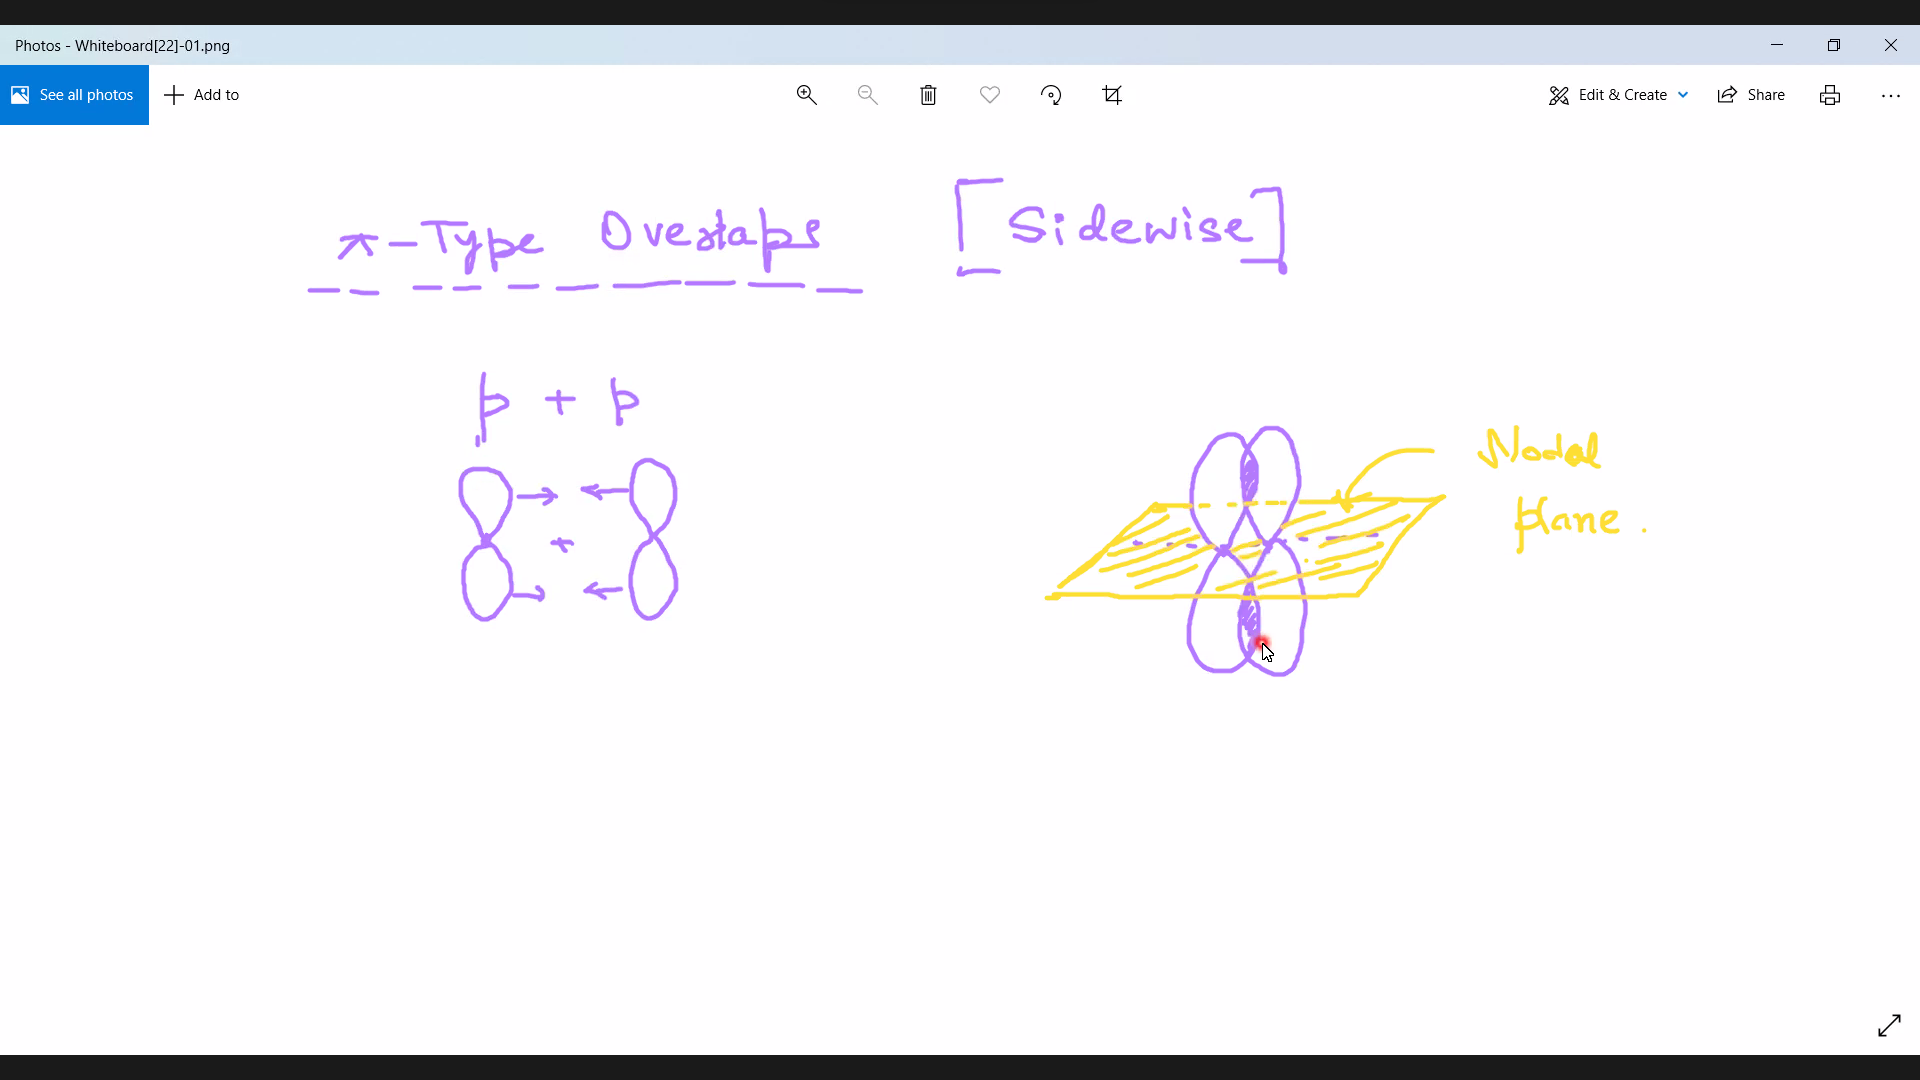 Photos - Whiteboard[22]-01.png
See all photos
Add to
Edit & Create
Share
π-Type Overlaps [Sidewise]
p + p
+
Nodal
plane.